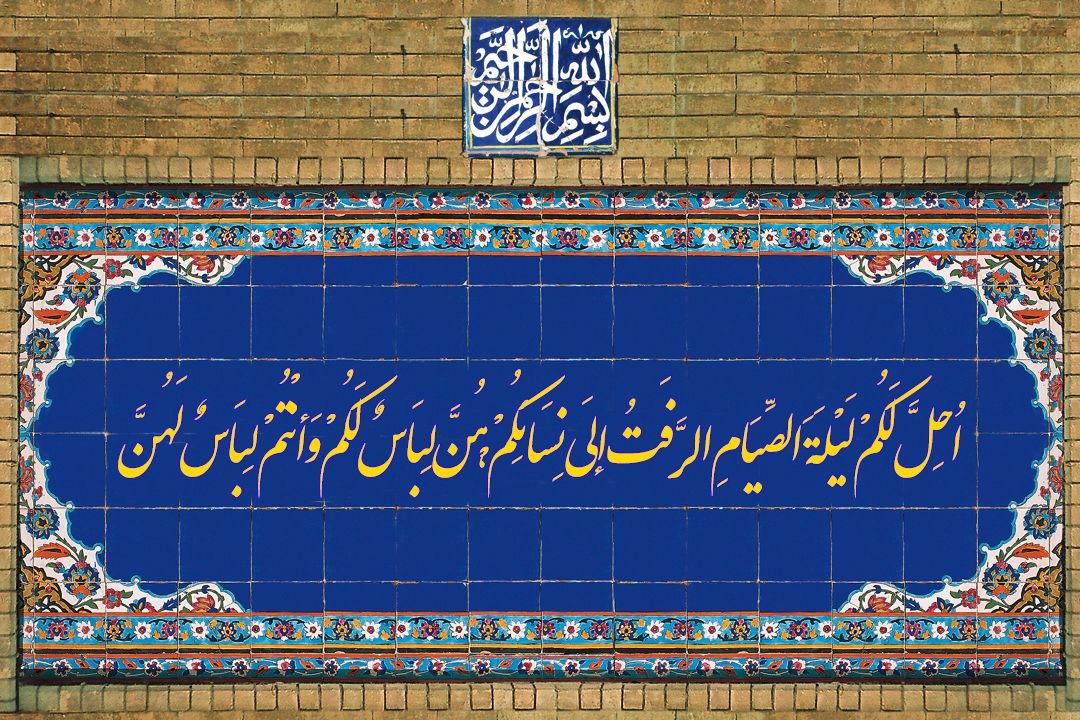 بِسْمِ اللّٰهِ الرَّحْمٰنِ الرَّحِيمِ
اُحِلَّ لَكُمْ لَيْلَةَ الصِّيَامِ الرَّفَثُ إِلىَ نِسَائِكُمْ هُنَّ لِبَاسٌ لَكُمْ وَأَنْتُمْ لِبَاسٌ لَهُنَّ